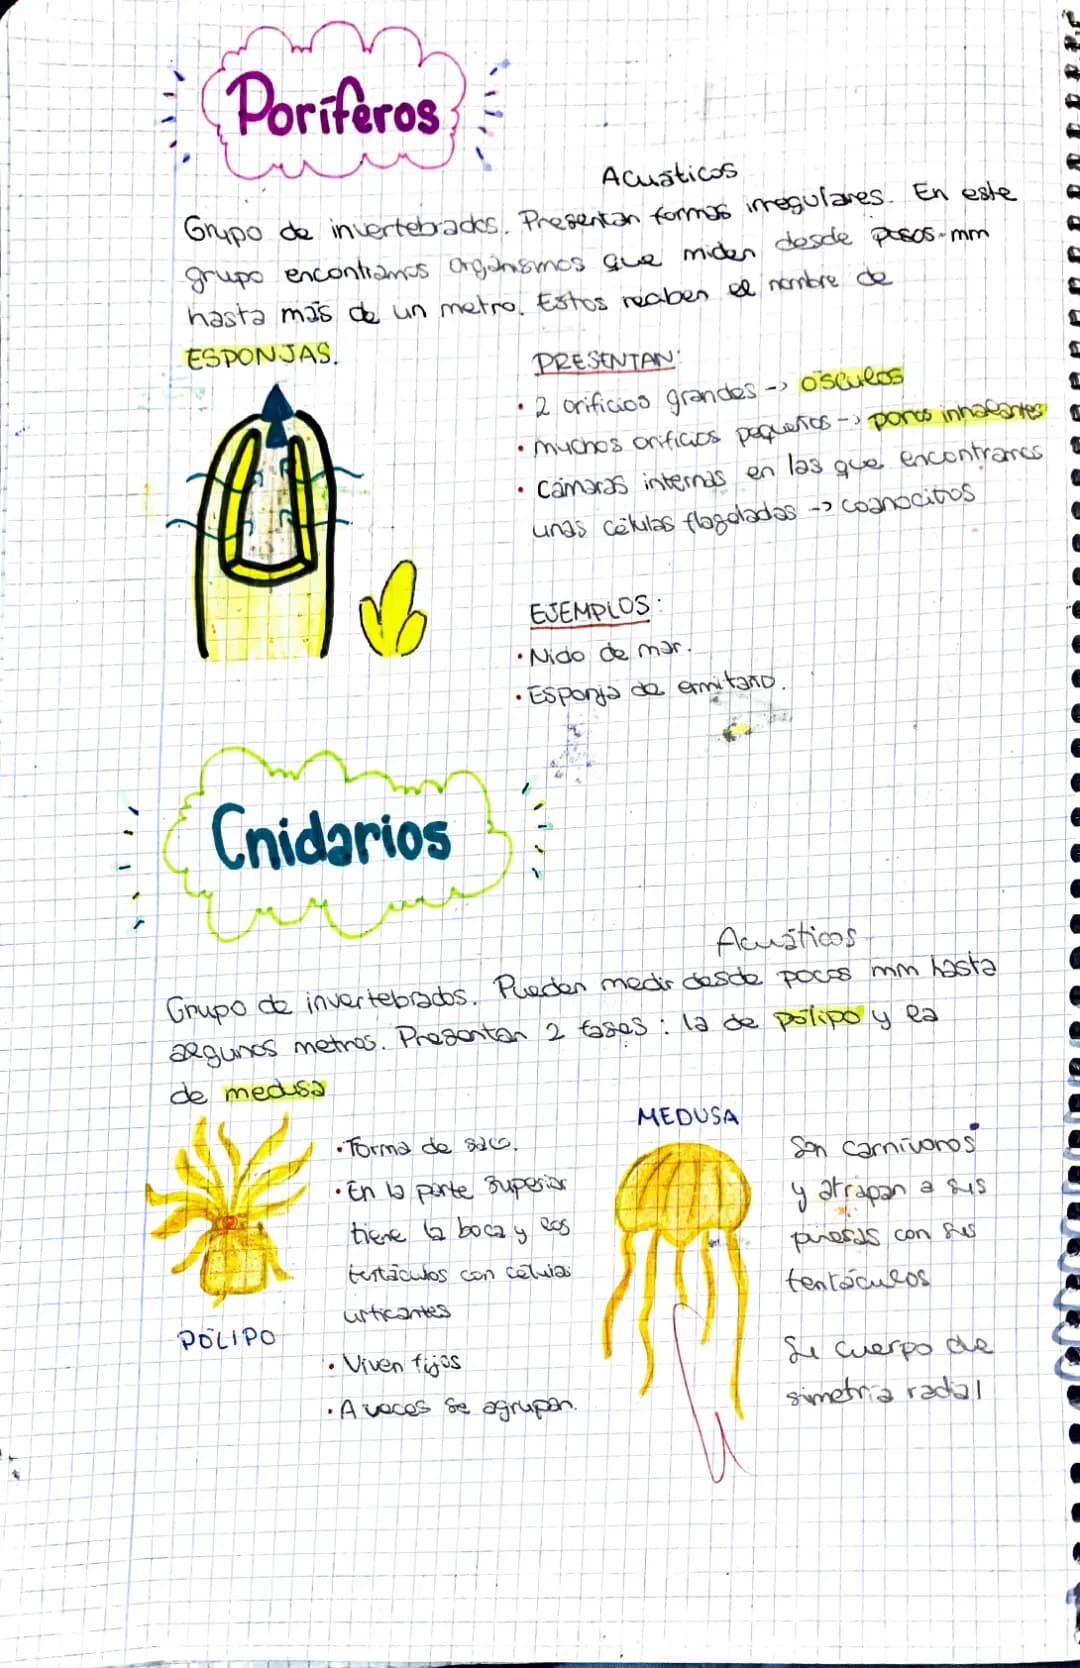 Poríferos
Acuáticos
Grupo de invertebrados. Presentan formas irregulares. En este
grupo encontramos organismos que miden desde pocos mm
hasta más de un metro. Estos reciben el nombre de
ESPONJAS.
PRESENTAN:
• 2 orificios grandes -> ósculos
• muchos orificios pequeños -> poros inhalantes
• cámaras internas en las que encontramos
unas células flageladas -> coanocitos
EJEMPLOS:
• Nido de mar.
• Esponja de ermitaño.
Cnidarios
Acuáticos
Grupo de invertebrados. Pueden medir desde pocos mm hasta
algunos metros. Presentan 2 fases: la de pólipo y la
de medusa
• Forma de saco.
• En la parte superior
tiene la boca y los
tentáculos con células
urticantes
• Viven fijos
• A veces se agrupan.
PÓLIPO
MEDUSA
Son carnívoros
y atrapan a sus
presas con sus
tentáculos
Su cuerpo de
simetría radial